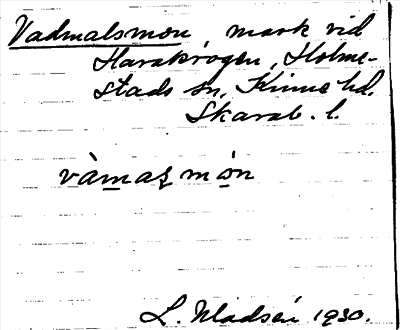 Vadmalsmon, mark vid
Harakrogen, Holme-
stads sn, Kinne hd.
Skarab. l.
vàmas mo̠n
L. Mladsén 1930.